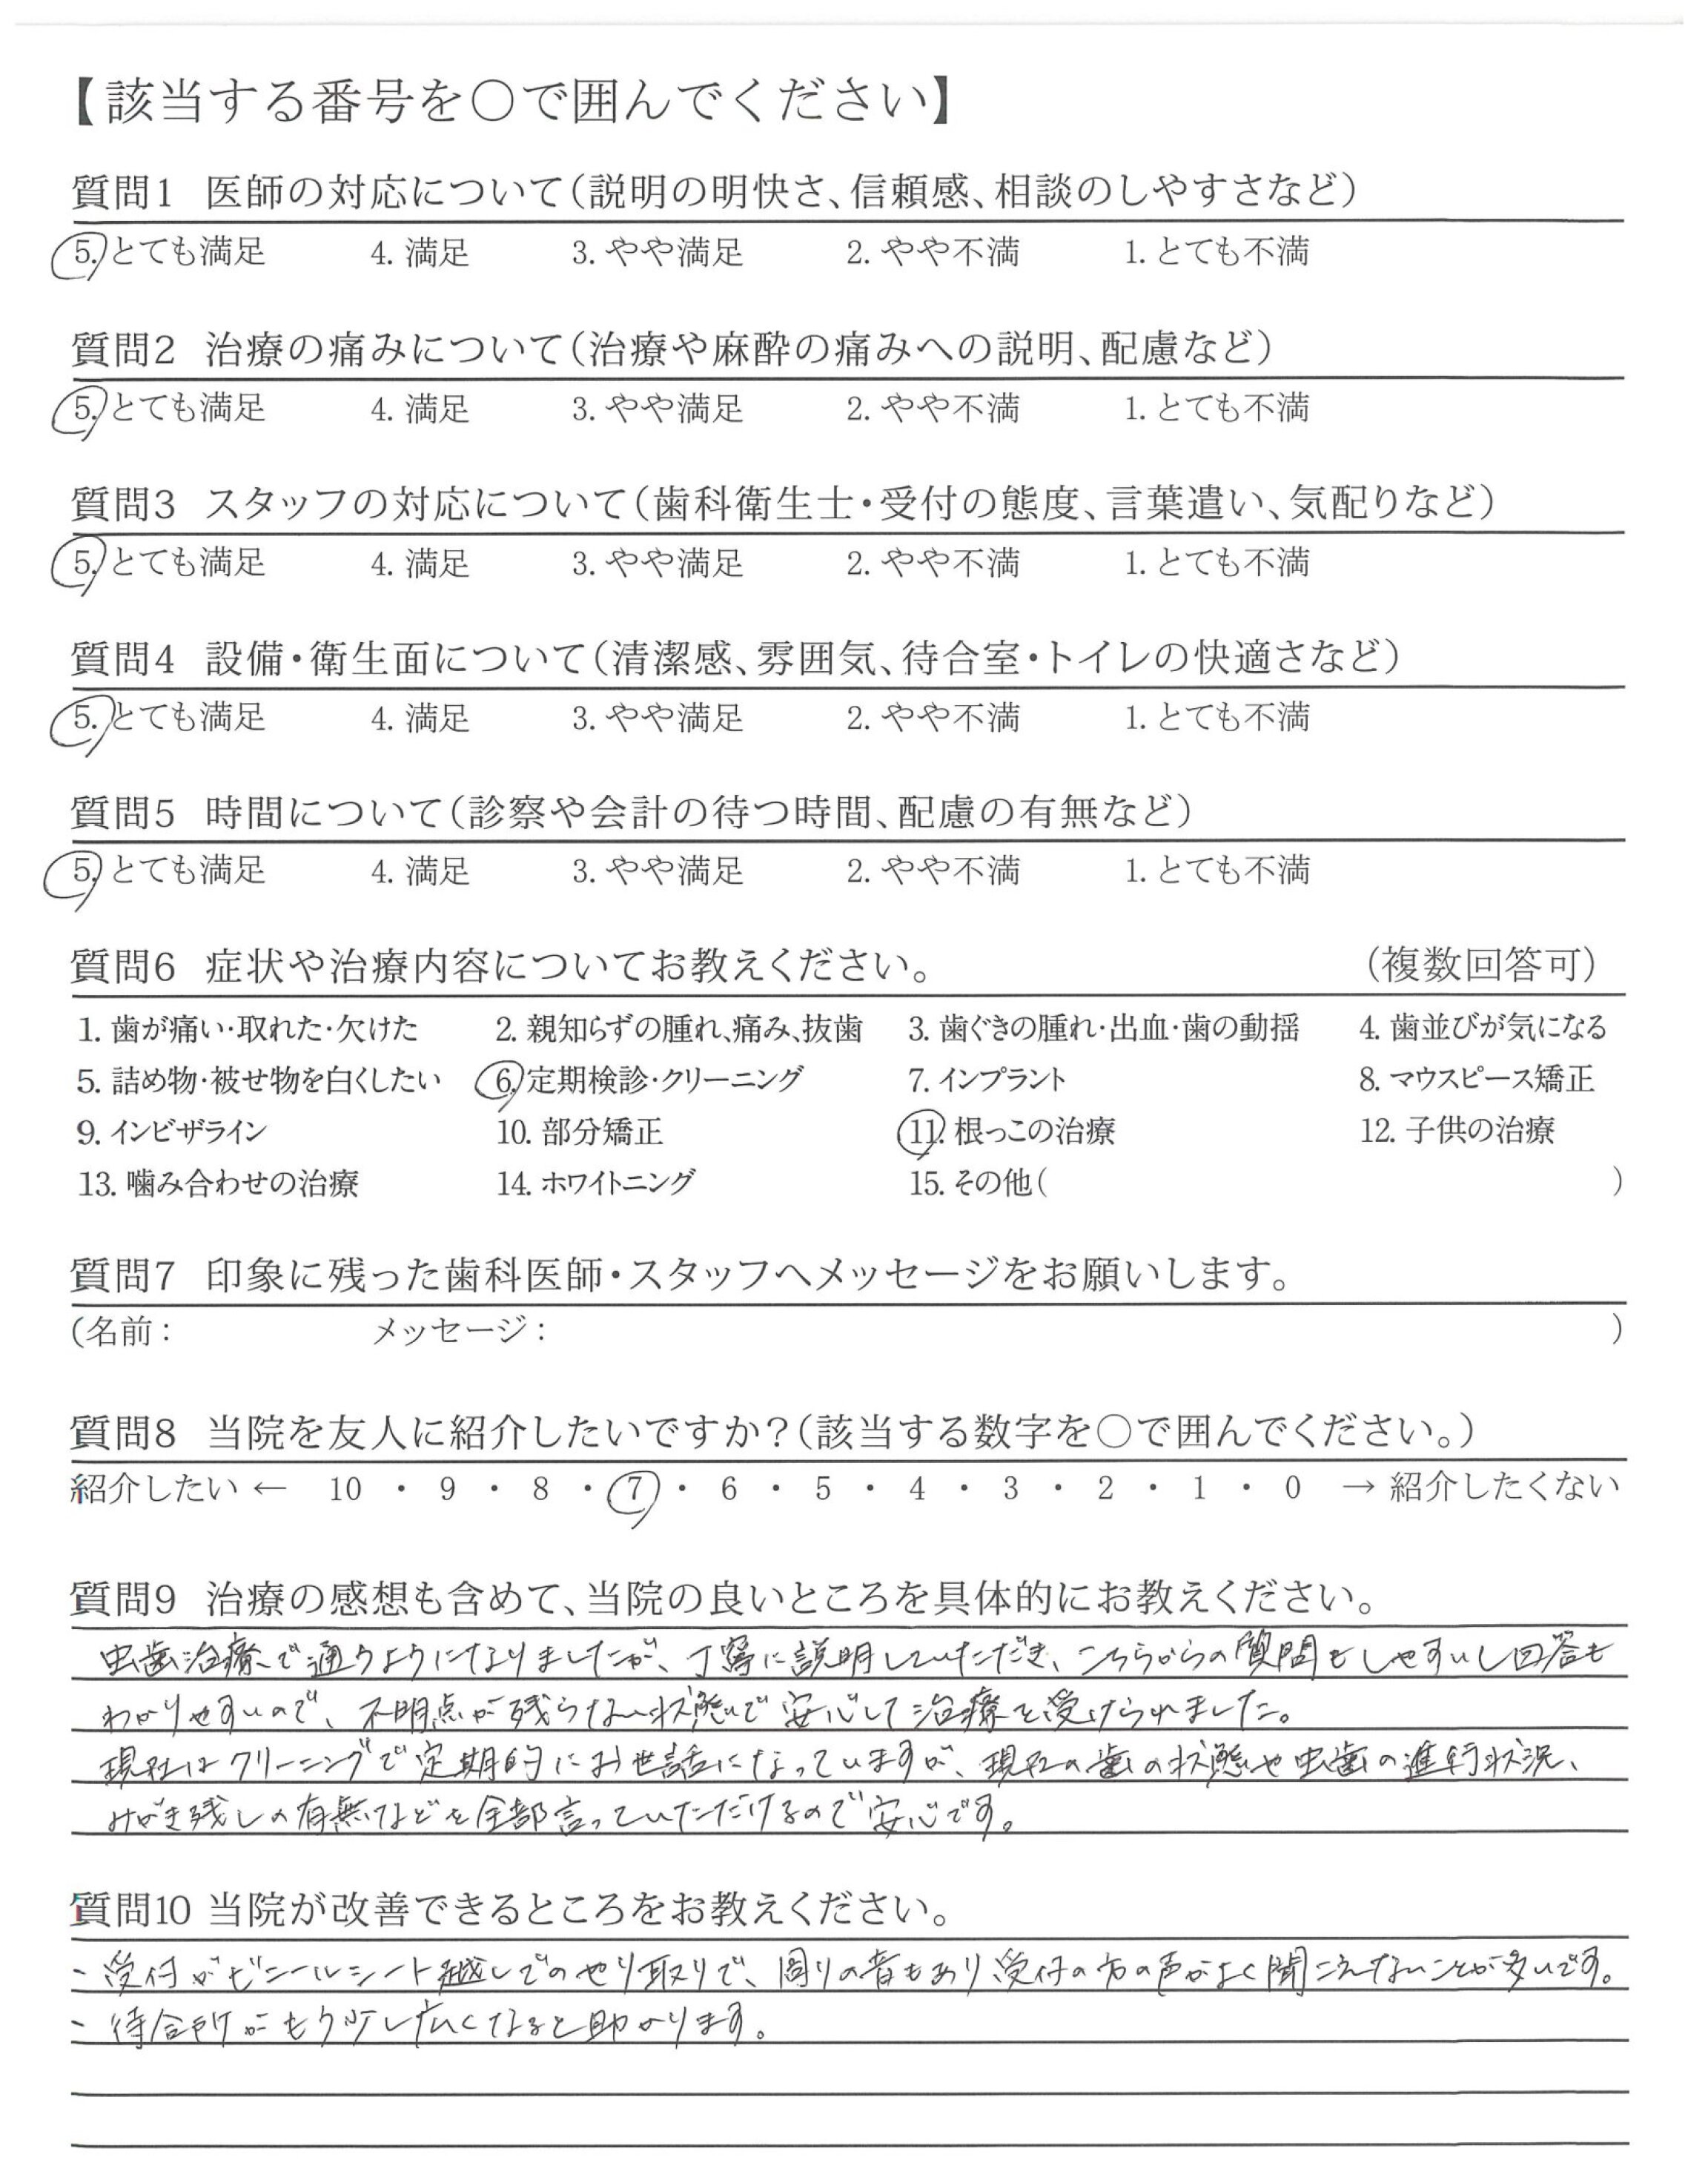 【該当する番号を○で囲んでください】
質問1 医師の対応について(説明の明快さ、信頼感、相談のしやすさなど)
5. とても満足 4. 満足 3. やや満足 2. やや不満 1. とても不満
質問2 治療の痛みについて(治療や麻酔の痛みへの説明、配慮など)
5. とても満足 4. 満足 3. やや満足 2. やや不満 1. とても不満
質問3 スタッフの対応について(歯科衛生士・受付の態度、言葉遣い、気配りなど)
5. とても満足 4. 満足 3. やや満足 2. やや不満 1. とても不満
質問4 設備・衛生面について(清潔感、雰囲気、待合室・トイレの快適さなど)
5. とても満足 4. 満足 3. やや満足 2. やや不満 1. とても不満
質問5 時間について(診察や会計の待つ時間、配慮の有無など)
5. とても満足 4. 満足 3. やや満足 2. やや不満 1. とても不満
質問6 症状や治療内容についてお教えください。 (複数回答可)
1. 歯が痛い・取れた・欠けた 2. 親知らずの腫れ、痛み、抜歯 3. 歯ぐきの腫れ・出血・歯の動揺 4. 歯並びが気になる
5. 詰め物・被せ物を白くしたい 6. 定期検診・クリーニング 7. インプラント 8. マウスピース矯正
9. インビザライン 10. 部分矯正 11. 根っこの治療 12. 子供の治療
13. 噛み合わせの治療 14. ホワイトニング 15. その他( )
質問7 印象に残った歯科医師・スタッフへメッセージをお願いします。
(名前: メッセージ: )
質問8 当院を友人に紹介したいですか?(該当する数字を○で囲んでください。)
紹介したい ← 10 ・ 9 ・ 8 ・ 7 ・ 6 ・ 5 ・ 4 ・ 3 ・ 2 ・ 1 ・ 0 → 紹介したくない
質問9 治療の感想も含めて、当院の良いところを具体的にお教えください。
虫歯治療で通うようになりましたが、丁寧に説明していただき、こちらからの質問もしやすいし回答も
わかりやすいので、不明点が残らない状態で安心して治療を受けられました。
現在はクリーニングで定期的にお世話になっていますが、現在の歯の状態や虫歯の進行状況、
みがき残しの有無などを全部言っていただけるので安心です。
質問10 当院が改善できるところをお教えください。
- 受付がビニールシート越しでのやり取りで、周りの音もあり受付の方の声がよく聞こえないことが多いです。
- 待合所がもう少し広くなると助かります。